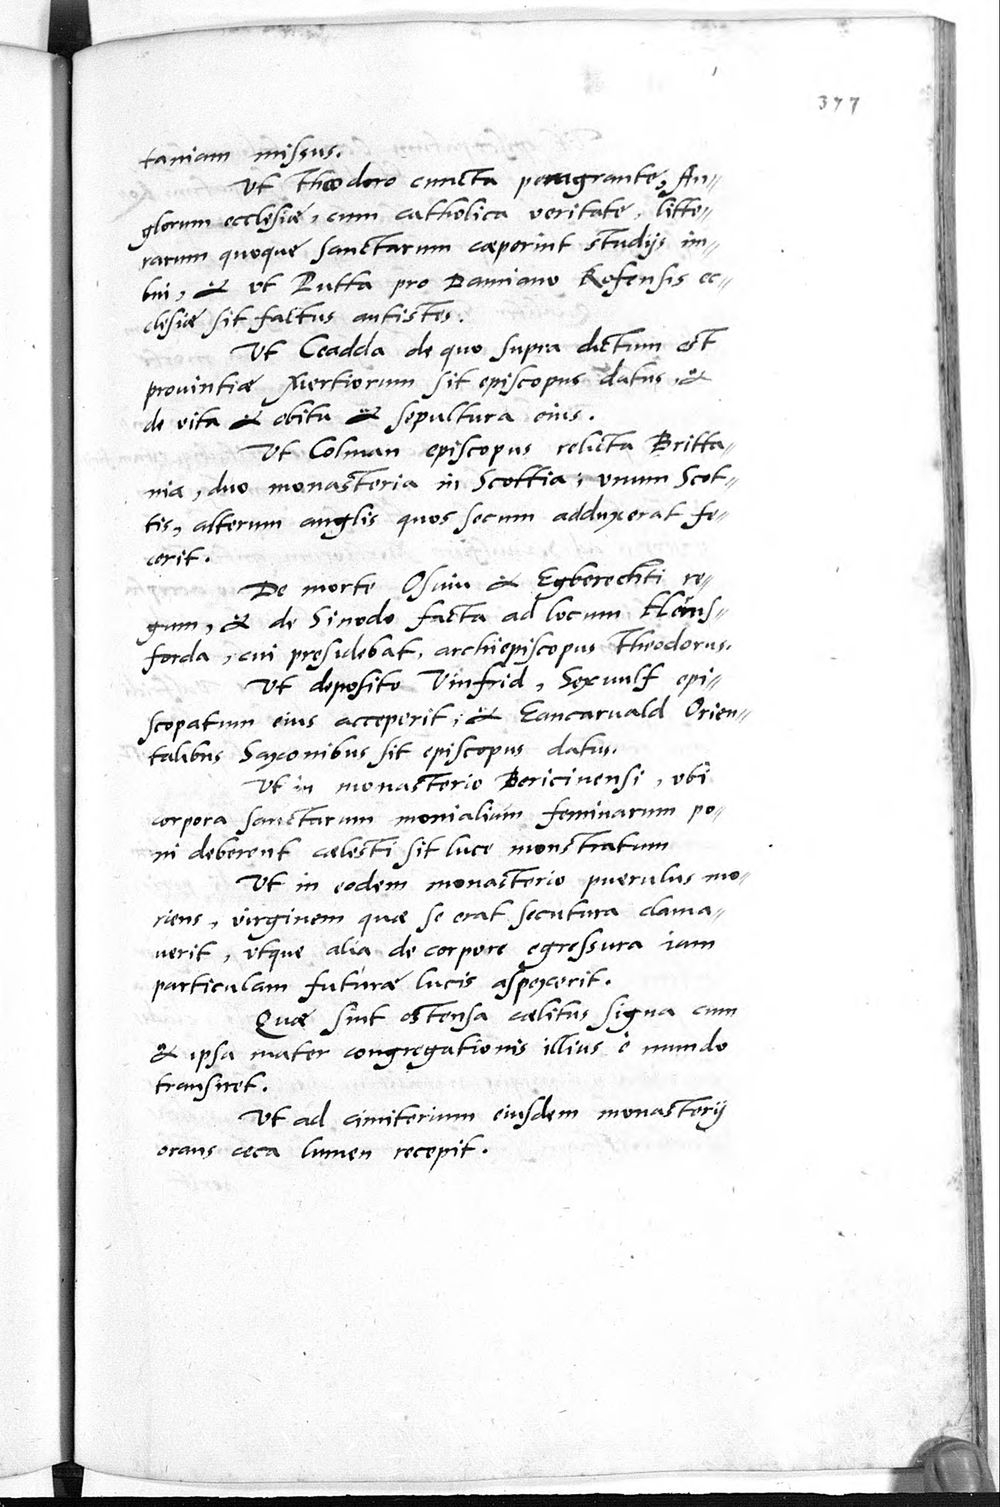 377
taniam missus.
Ut Theodoro cuncta peragrante, An=
glorum ecclesiæ, cum catholica veritate, litte=
rarum quoque sanctarum cæperint studijs im=
bui, & ut Putta pro Damiano Rofensis ec=
clesiæ sit factus antistes.
Ut Ceadda de quo supra dictum est
provintiæ Mertiorum sit episcopus datus, &
de vita & obitu & sepultura eius.
Ut Colman episcopus relicta Britta=
nia, duo monasteria in Scottia; unum Scot=
tis, alterum anglis quos secum adduxerat fe=
cerit.
De morte Osuiu & Egberechti re=
gum, & de Sinodo facta ad locum
forda, cui presidebat, archiepiscopus Theodorus.
Ut deposito Vinfrid, Sexuulf epi=
scopatum eius acceperit; & Earcaruald Orien=
talibus Saxonibus sit episcopus datus.
Ut in monasterio Bericinensi, ubi
corpora sanctarum monialium feminarum po=
ni deberent cælesti sit luce monstratum
Ut in eodem monasterio puerulus mo=
riens, virginem quæ se erat secutura clama=
verit, utque alia de corpore egressura iam
particulam futuræ lucis aspexerit.
Quæ sint ostensa cælitus signa cum
& ipsa mater congregationis illius e mundo
transiret.
Ut ad cimiterium eiusdem monasterij
orans ceca lumen recepit.